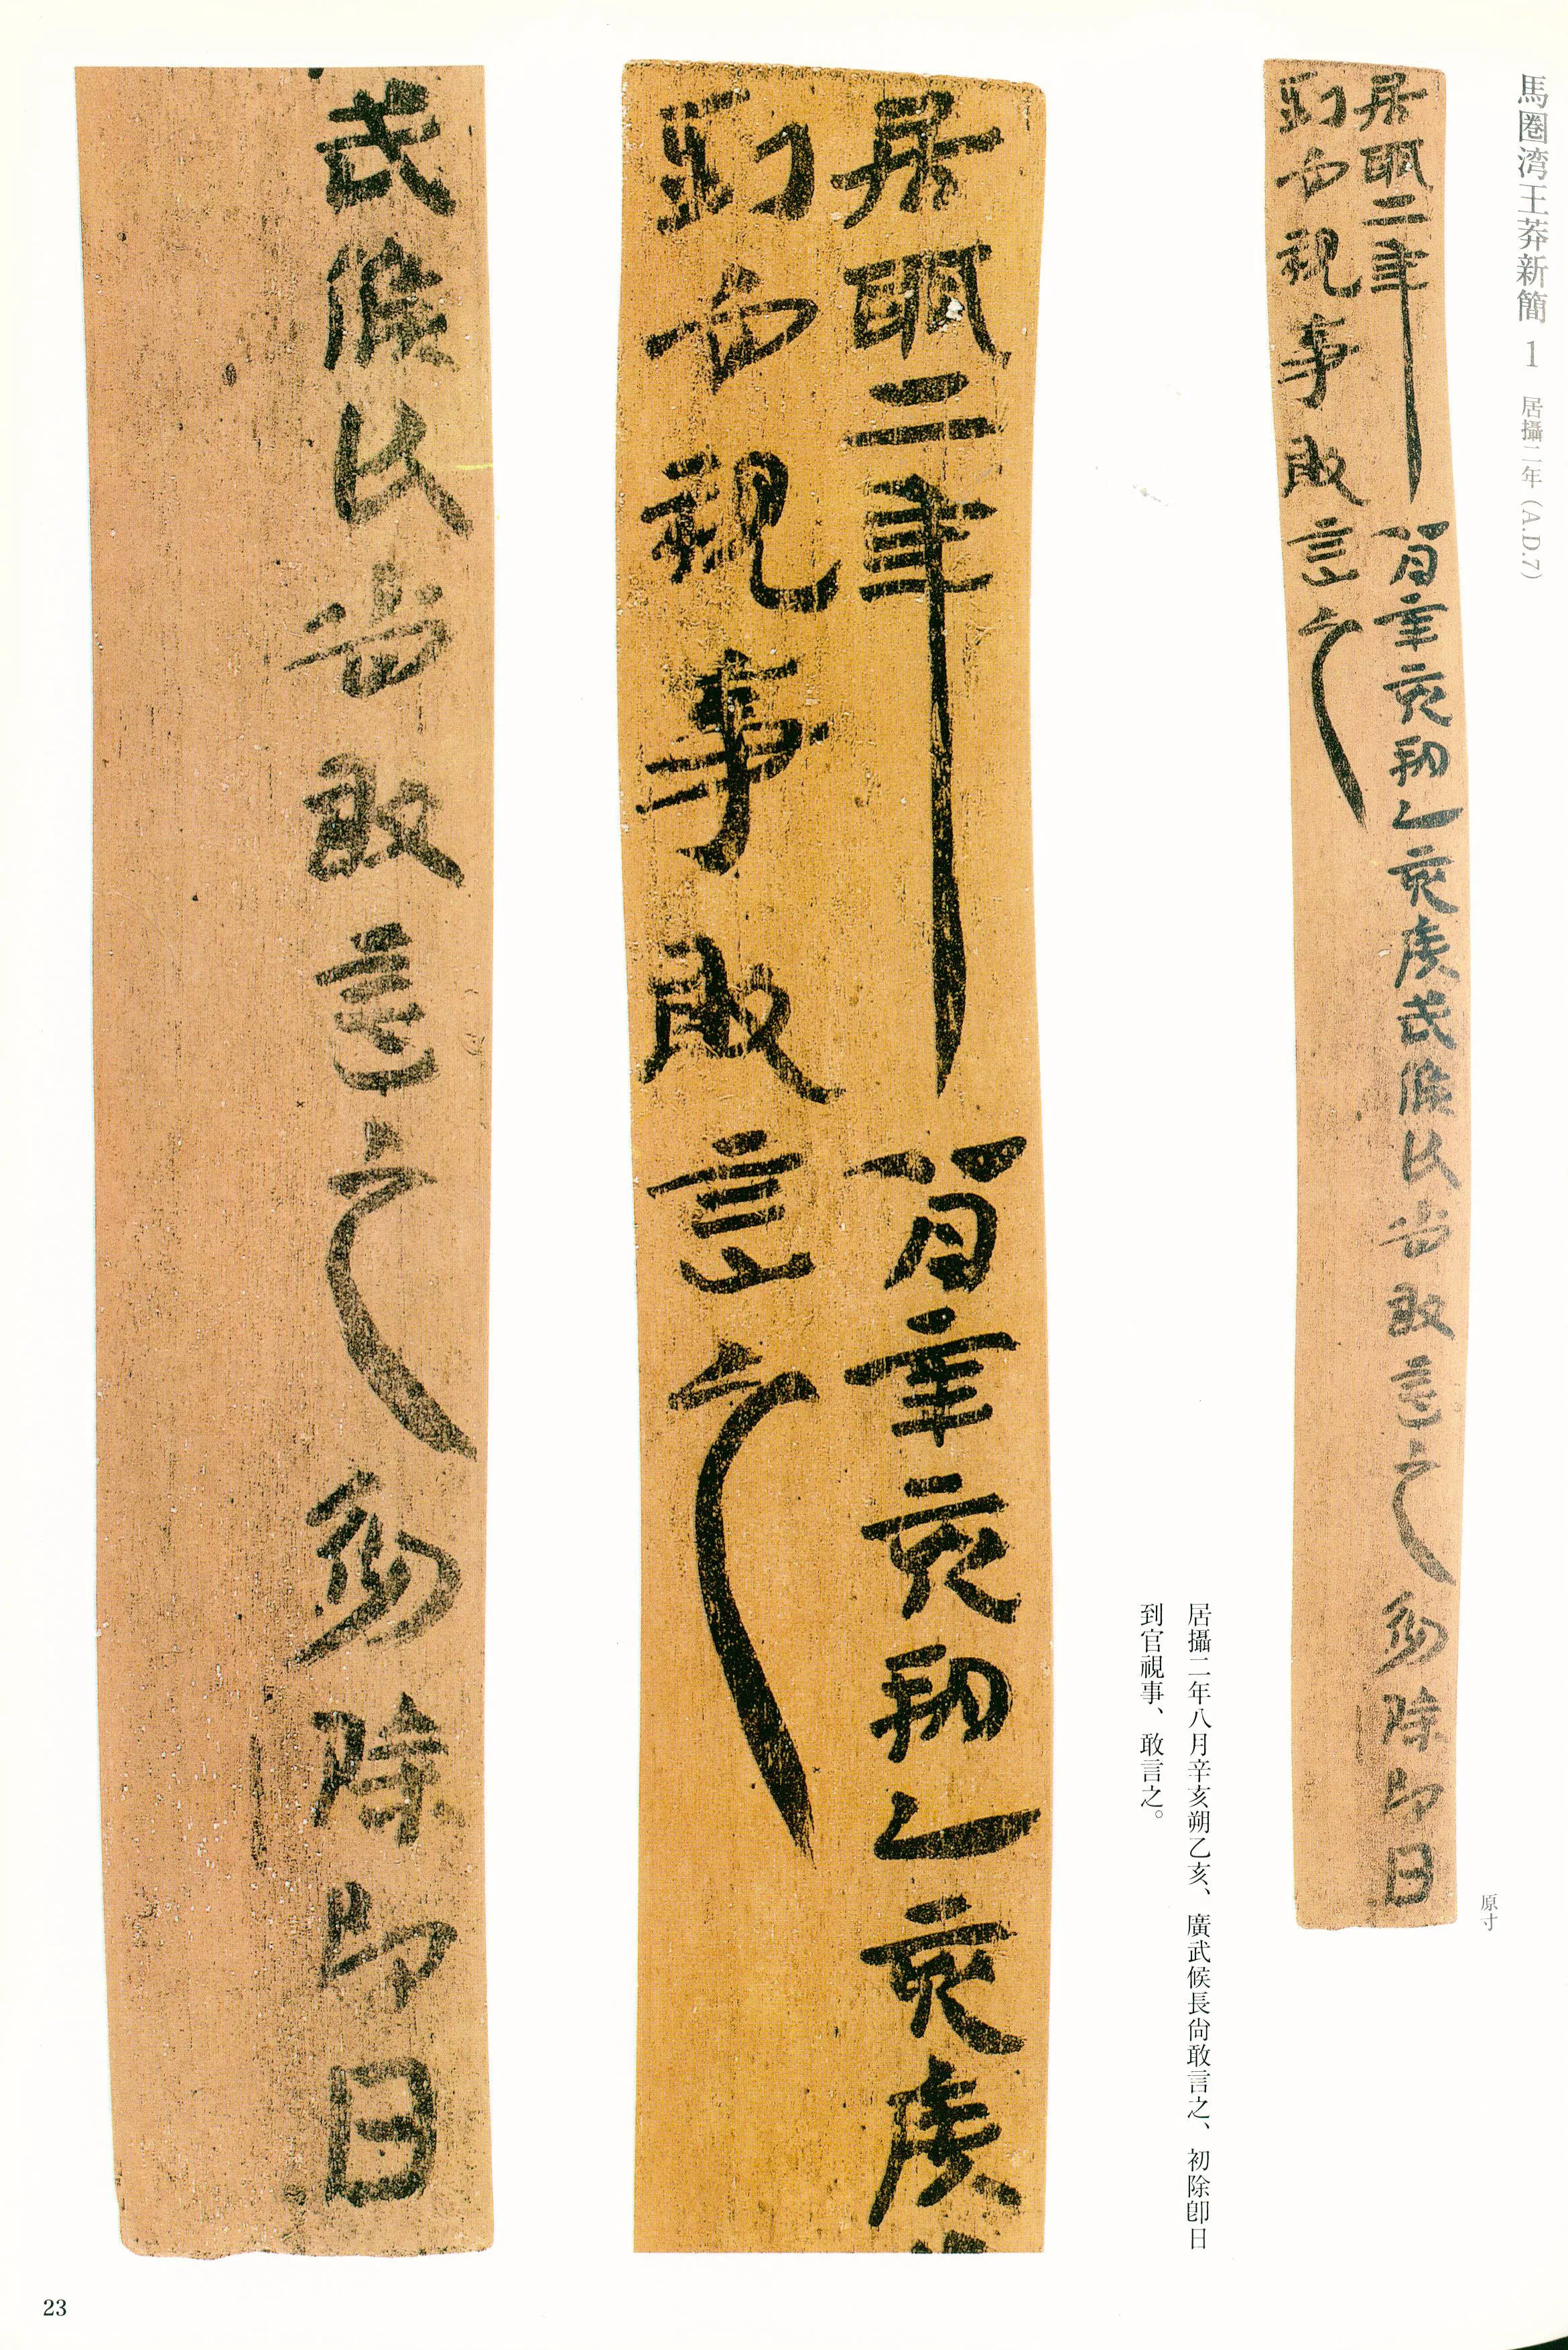 馬圏湾王莽新簡 1 居攝二年（A.D.7）
居攝二年八月辛亥朔乙亥廣武候長尙敢言之初除卽日
到官視事敢言之
原寸
居攝二年八月辛亥朔乙亥、廣武候長尙敢言之、初除卽日
到官視事、敢言之。
居攝二年八月辛亥朔乙亥廣
到官視事敢言之
武候長尙敢言之初除卽日
23